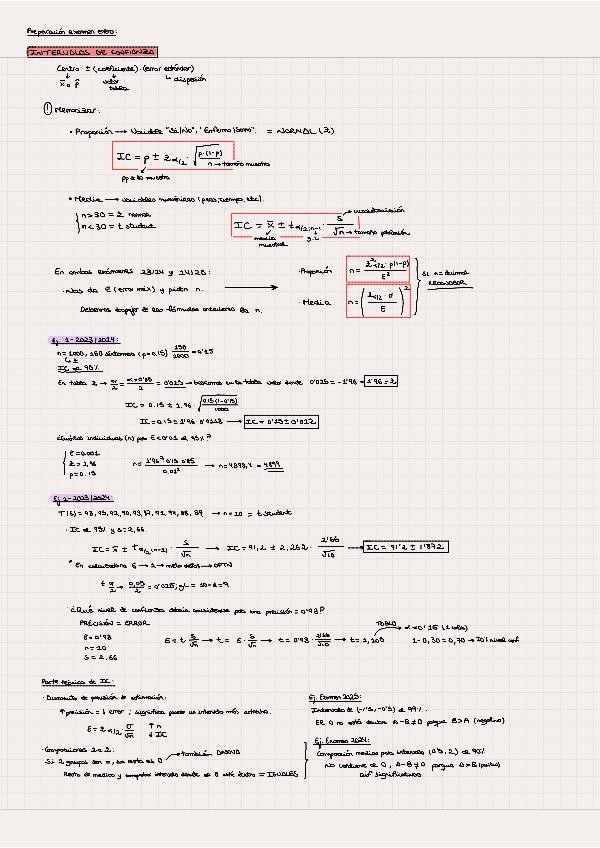 Preparación examen estro:
INTERVALOS DE CONFIANZA
Centro ± (coeficiente) · (error estándar)
x̄ o p̂ valor tabla ↳ dispersión
! Memorizar:
· Proporción → Variable "Si/No", "Enfermo/Sano". = NORMAL (Z)
IC = p ± z α/2 · √(p·(1-p) / n) → tamaño muestra
· Media → variables numéricas (peso, tiempo, etc).
n > 30 = Z normal
n < 30 = t student
IC = x̄ ± t α/2; n-1 · S / √n → tamaño población
media muestral g.l.
En ambos exámenes 23/24 y 24/25:
· Nos da E (error máx) y piden n. →
Debemos despejar de las fórmulas anteriores la n.
· Proporción n = z² α/2 · p(1-p) / E²
· Media n = (z α/2 · σ / E)²
Si n = decimal REDONDEAR
Ej. 1 - 2023/2024:
n = 1000, 150 síntomas (p = 0.15) 150/1000 = 0'15
IC al 95%
En tabla Z → α/2 = α = 0'05 / 2 = 0'025 → buscamos en la tabla valor donde 0'025 = -1'96 = 1'96 = Z
IC = 0.15 ± 1.96 · √(0.15(1-0'15) / 1000)
IC = 0.15 ± 1'96 · 0.0113 → IC = 0'15 ± 0'022
¿Cuántos individuos (n) para E < 0'01 al 95%?
E = 0.001
Z = 1,96
p = 0.15
n = 1'96² · 0'15 · 0'85 / 0.01² → n = 4898,4 = 4899
Ej 2 - 2023/2024:
→ n = 10 = t student
· IC al 95% y s = 2,66.
IC = x̄ ± t α/2 (n-1) · S/√n → IC = 91,2 ± 2,262 · 2'66/√10 → IC = 91'2 ± 1'892
t α/2 → 0,05/2 = 0'025; gL = 10-1 = 9
· ¿Qué nivel de confianza debería considerarse para una precisión = 0'93?
PRECISIÓN = ERROR
E = 0'93
n = 10
S = 2,66
1 - 0,30 = 0,70 → 70% nivel conf
Parte teórica de IC:
· Aumento de precisión de estimación:
↑ precisión = ↓ error; significa puede un intervalo más estrecho.
E = z α/2 · σ/√n ↑ n ↓ IC
· Comparaciones 2 a 2:
· Si 2 grupos son =, su resta es 0 → también ANOVA
Resto de medias y comprobar intervalo donde el 0 esté dentro = IGUALES
Ej. Examen 2025:
Intervalo de (-1'5, -0'5) al 99%.
El 0 no está dentro A-B ≠ 0 porque B > A (negativo)
Ej. Examen 2024:
Comparación medias para intervalo (0'5, 2) al 95%
No contiene el 0, A-B ≠ 0 porque A > B (positivo)
Dif significativas